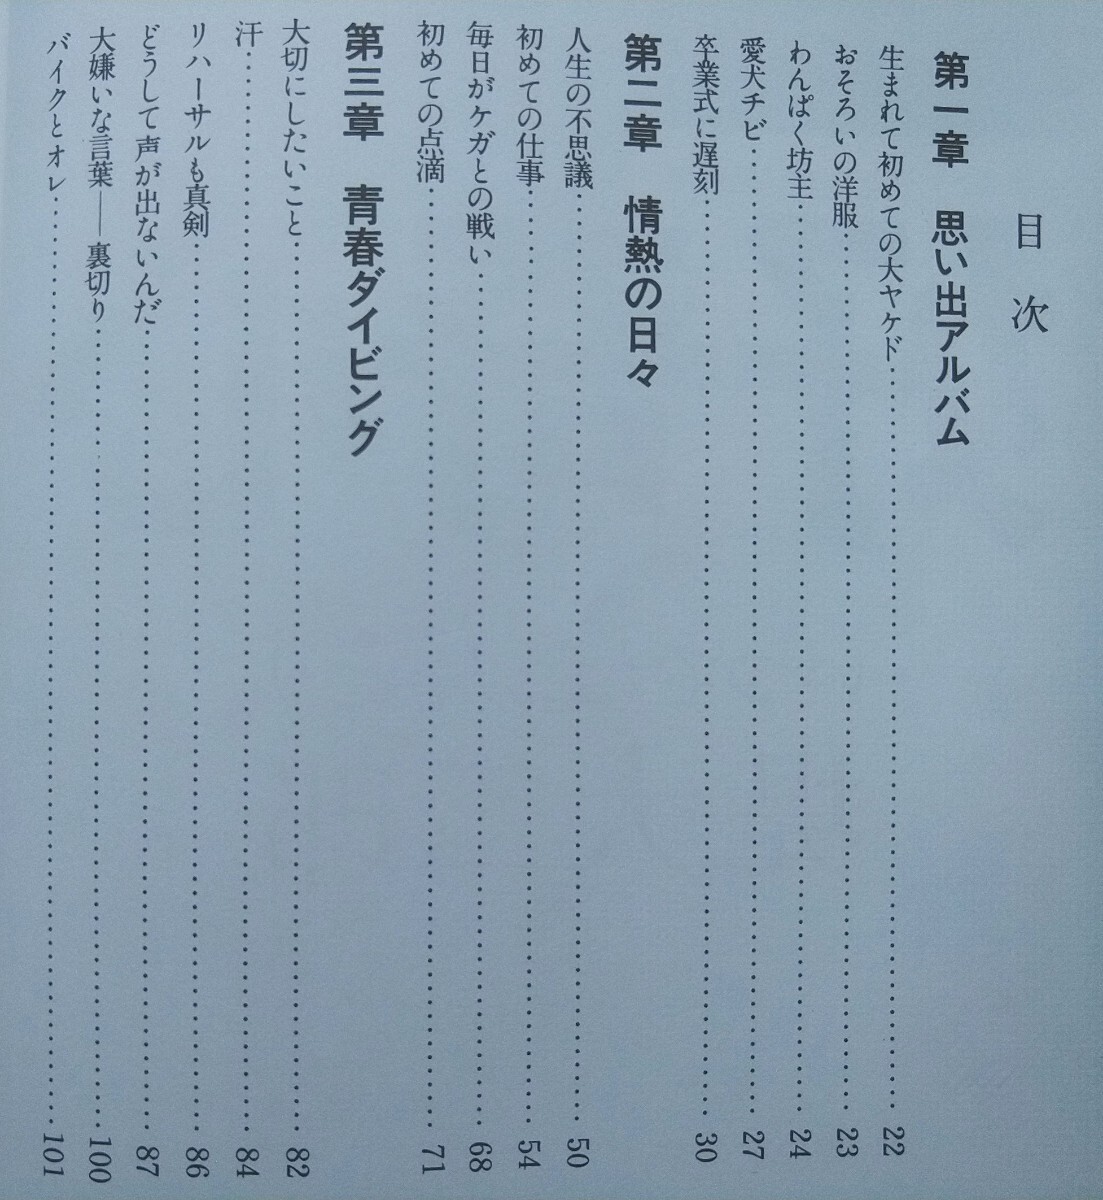 目次
第一章　思い出アルバム
生まれて初めての大ヤケド……22
おそろいの洋服……23
わんぱく坊主……24
愛犬チビ……27
卒業式に遅刻……30
第二章　情熱の日々
人生の不思議……50
初めての仕事……54
毎日がケガとの戦い……68
初めての点滴……71
第三章　青春ダイビング
大切にしたいこと……82
汗……84
リハーサルも真剣……86
どうして声が出ないんだ……87
大嫌いな言葉――裏切り……100
バイクとオレ……101